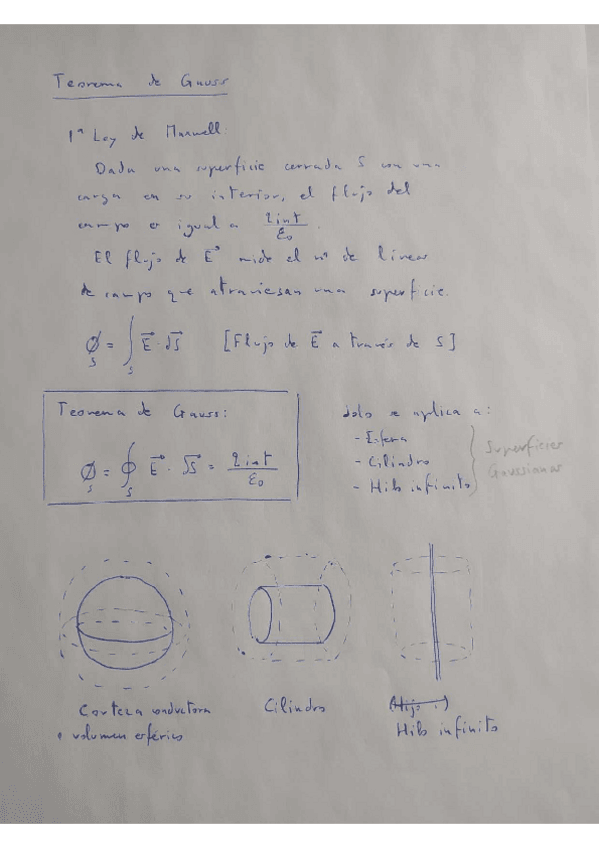 Teorema de Gauss
1ª Ley de Maxwell:
Dada una superficie cerrada S con una
carga en su interior, el flujo del
campo es igual a qint/ε₀.
El flujo de E⃗ mide el nº de líneas
de campo que atraviesan una superficie.
Ø_S = ∫_S E⃗ · dS⃗ [Flujo de E⃗ a través de S]
Teorema de Gauss:
Ø_S = ∮_S E⃗ · dS⃗ = qint/ε₀
Solo se aplica a:
- Esfera
- Cilindro
- Hilo infinito
Superficies
Gaussianas
Corteza conductora
o volumen esférico
Cilindro
Hilo infinito